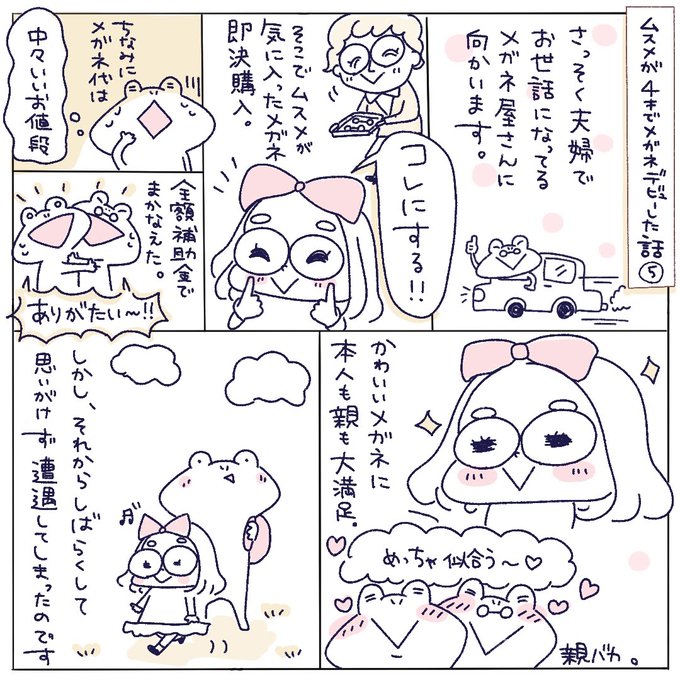 ムスメが4才でメガネデビューした話⑤
さっそく夫婦で
お世話になってる
メガネ屋さんに
向かいます。
そこでムスメが
気に入ったメガネ
即決購入。
コレにする!!
ちなみに
メガネ代は
中々いいお値段
全額補助金で
まかなえた。
ありがたい〜!!
かわいいメガネに
本人も親も大満足。
めっちゃ似合う〜♡
親バカ。
しかし、それからしばらくして
思いがけず遭遇してしまったのです